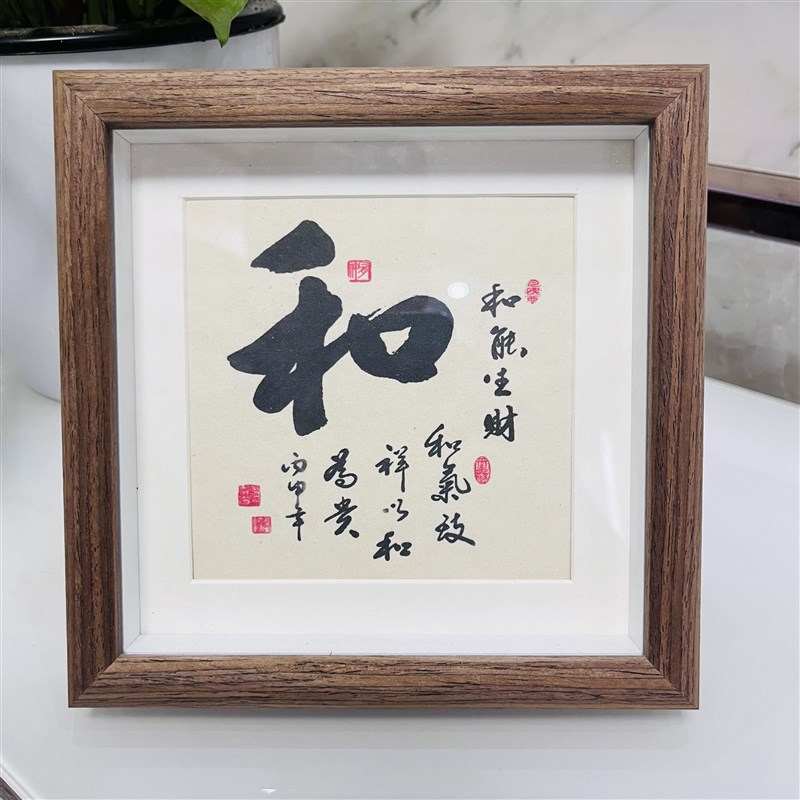 和
和能生财
和氣致
祥以和
為贵
丙申年